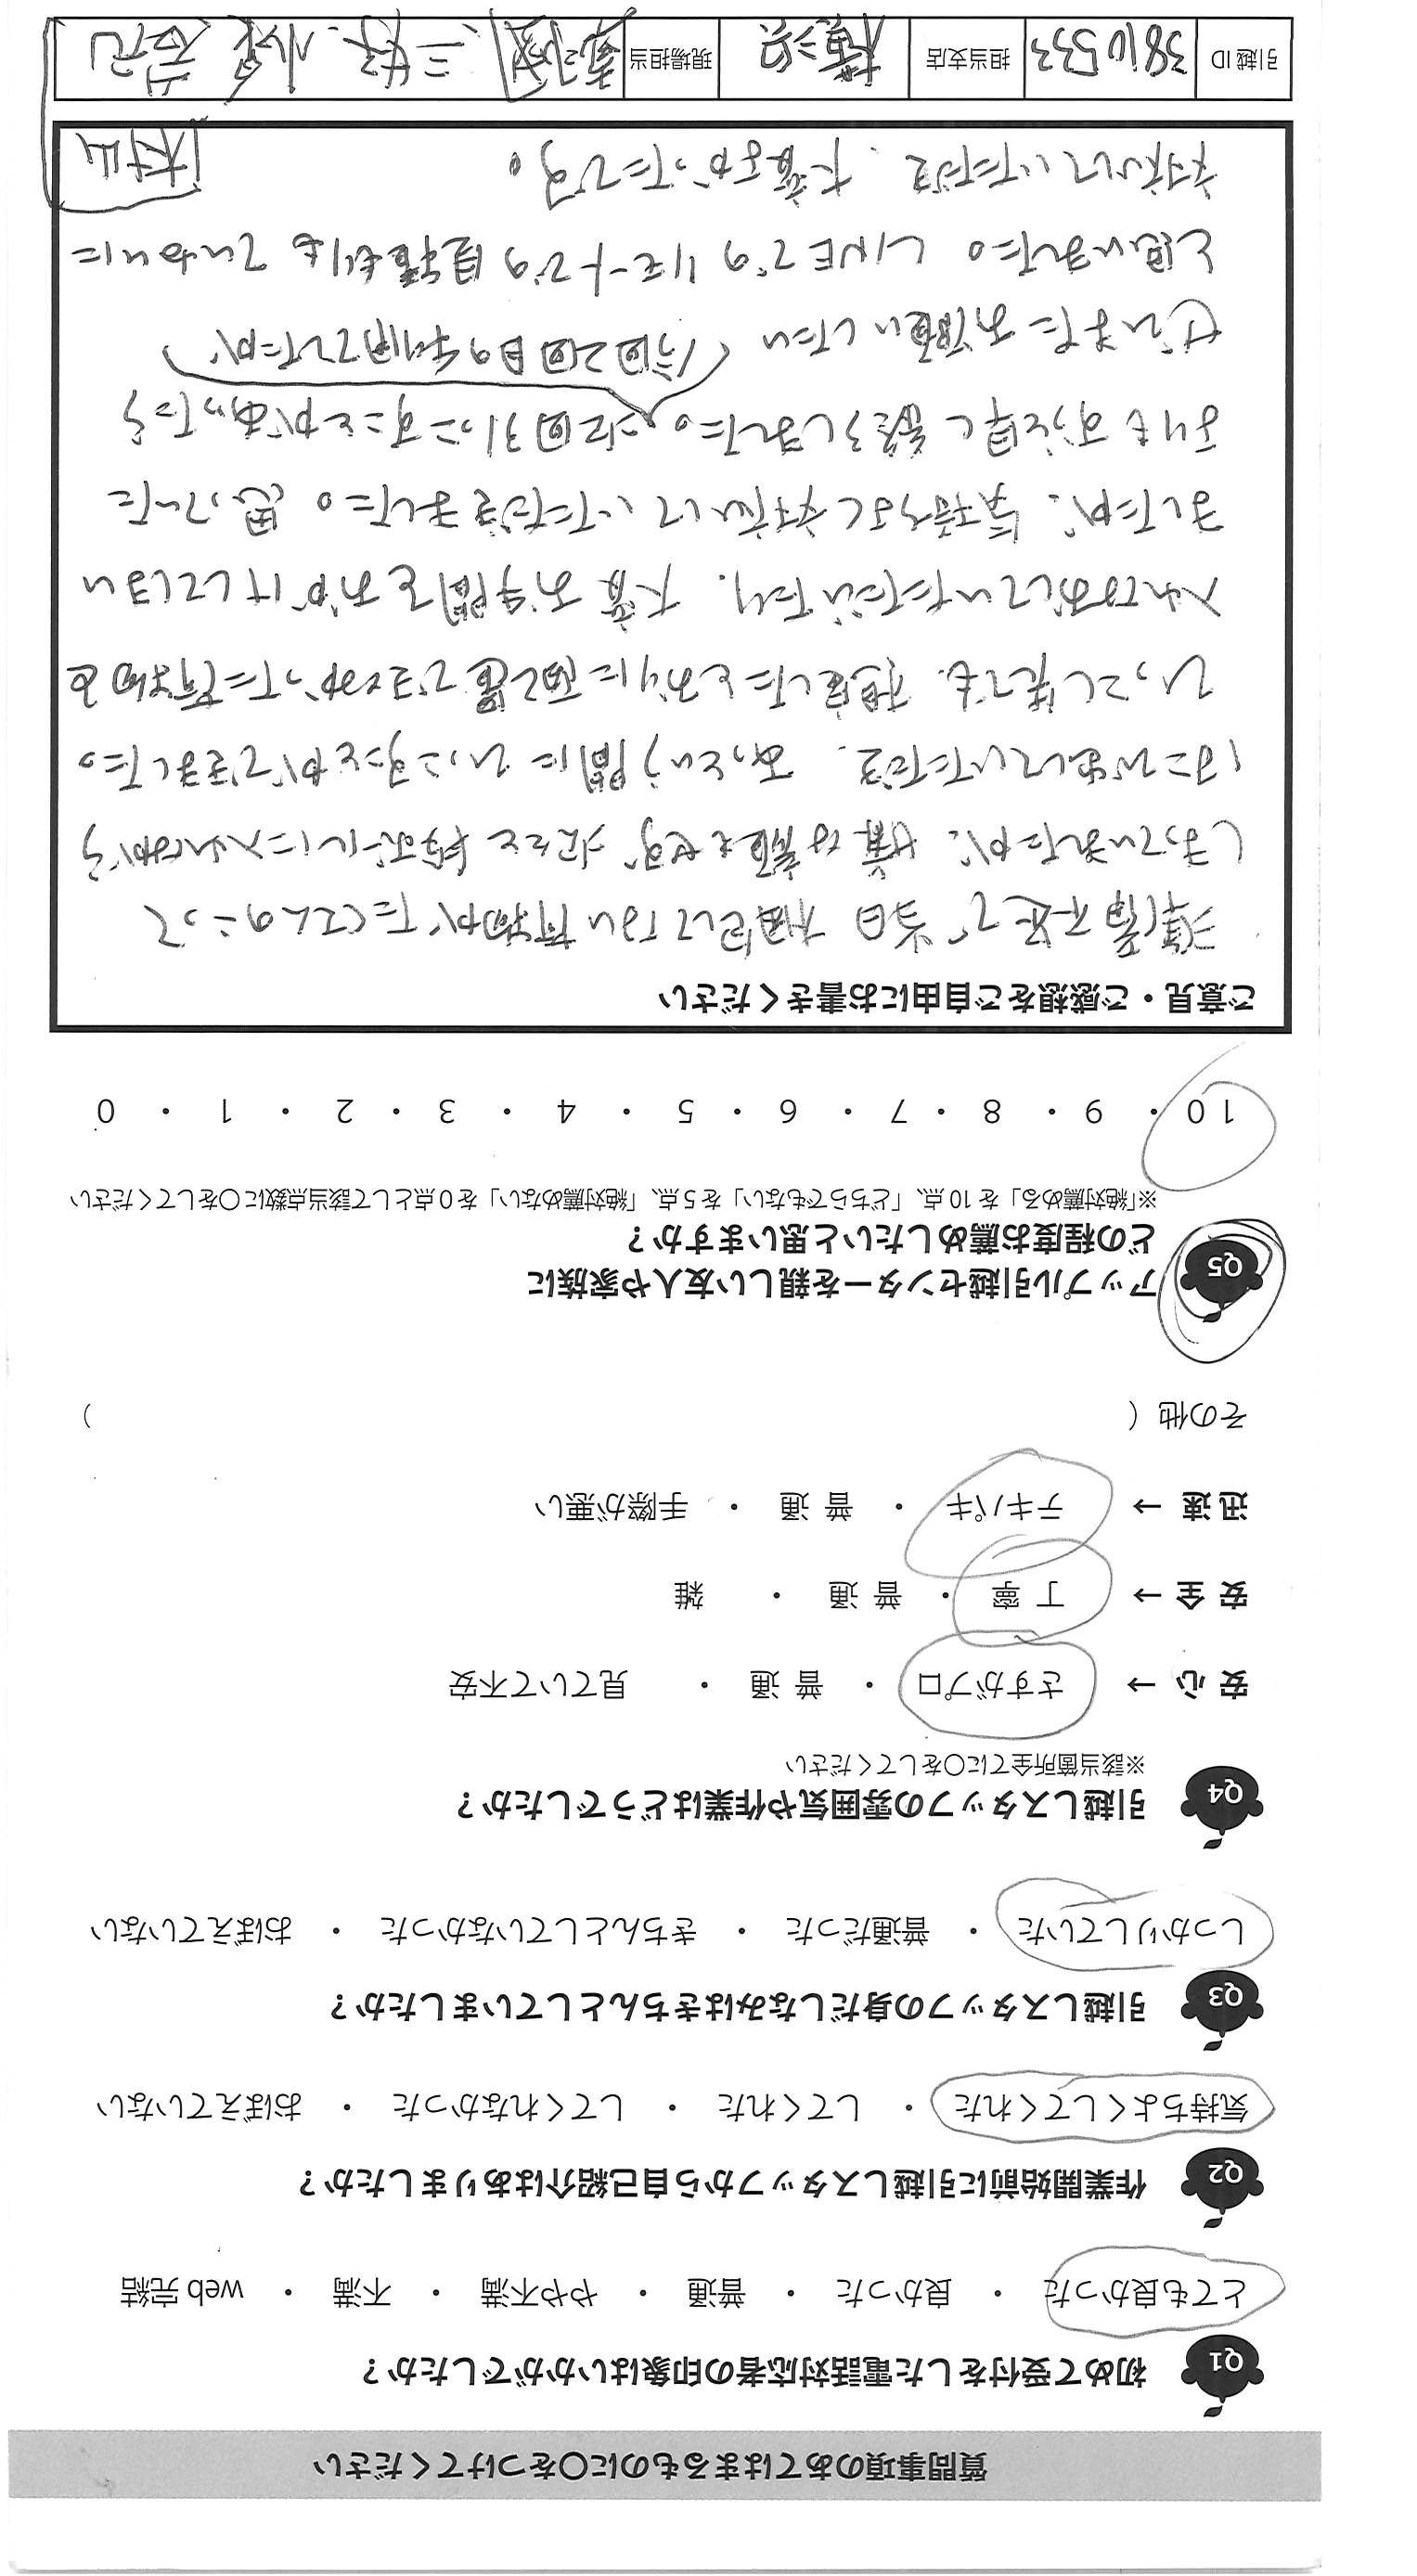 質問事項のあてはまるものに○をつけてください
Q1 初めて受付をした電話対応者の印象はいかがでしたか？
とても良かった ・ 良かった ・ 普通 ・ やや不満 ・ 不満 ・ web 完結
Q2 作業開始前に引越しスタッフから自己紹介はありましたか？
気持ちよくしてくれた ・ してくれた ・ してくれなかった ・ おぼえていない
Q3 引越しスタッフの身だしなみはきちんとしていましたか？
しっかりしていた ・ 普通だった ・ きちんとしていなかった ・ おぼえていない
Q4 引越しスタッフの雰囲気や作業はどうでしたか？
※該当箇所全てに○をしてください
安 心 → さすがプロ ・ 普 通 ・ 見ていて不安
安 全 → 丁 寧 ・ 普 通 ・ 雑
迅 速 → テキパキ ・ 普 通 ・ 手際が悪い
その他（ ）
Q5 アップル引越センターを親しい友人や家族に
どの程度お薦めしたいと思いますか？
※「絶対薦める」を 10 点、「どちらでもない」を 5 点、「絶対薦めない」を 0 点として該当点数に○をしてください
10 ・ 9 ・ 8 ・ 7 ・ 6 ・ 5 ・ 4 ・ 3 ・ 2 ・ 1 ・ 0
ご意見・ご感想をご自由にお書きください
準備不足で 当日 梱包してない荷物が たくさんのこって
しまっていましたが、嫌な顔もせず 次々と 段ボールに入れながら
はこび出していただき、あっという間に ひっこすことができました。
ひっこし先でも、想定したとおりに配置できなかった荷物を
入れなおしていただいたり、大変お手間をおかけしてしまい
ましたが、気持ちよく対応していただきました。思っていた
よりもずっと早く終了しました。次回引っこすことがあったら
（今回2回目の利用でしたが、）
ぜひまたお願いしたい
と思いました。LINEでのリモートでの見積もりも ていねいに
対応していただき、大変よかったです。
村山
引越 ID 3810533 担当支店 横浜 現場担当 三好、小泉